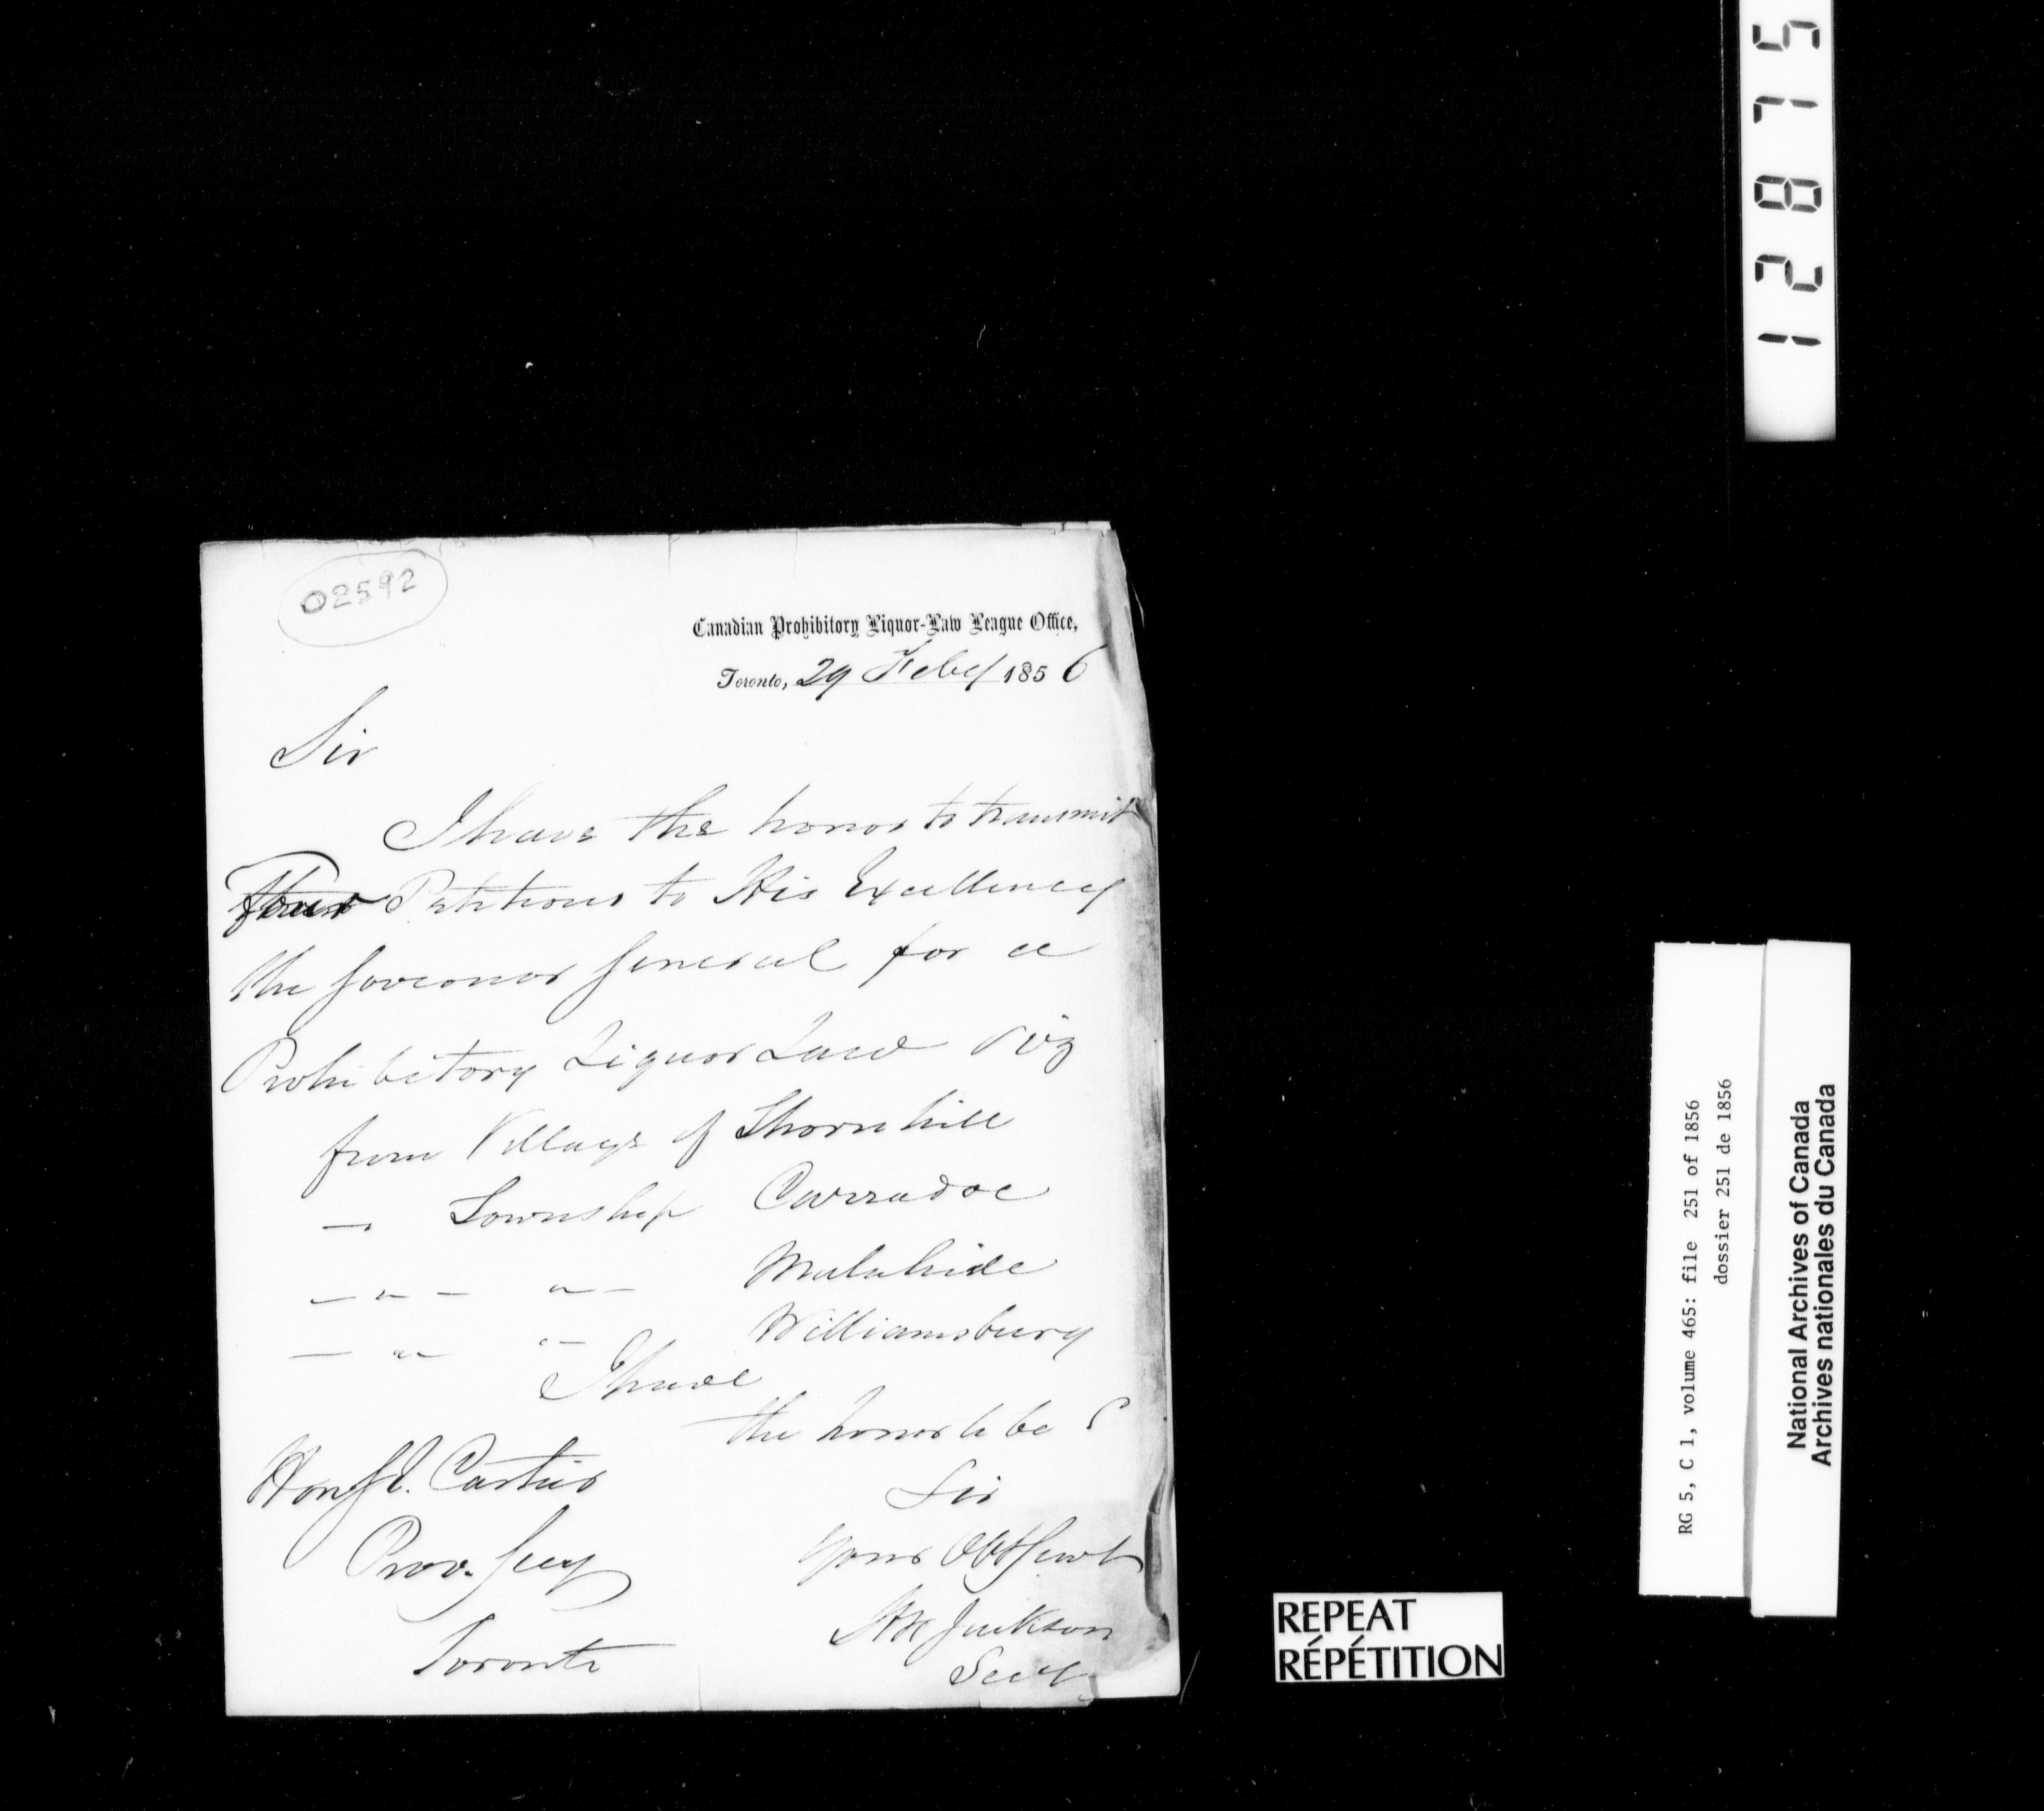 12875
02592
Canadian Prohibitory Liquor-Law League Office,
Toronto, 29 Feby 1856
Sir
I have the honor to transmit
Four Petitions to His Excellency
the Governor General for a
Prohibitory Liquor Law viz
from Village of Thornhill
— Township Carradoc
— " — " — Malahide
— " — " — Williamsburg
I have
the honor to be
Sir
Your Obt Servt
Jackson
Secy
Hon G. E. Cartier
Prov. Secy
Toronto
RG 5, C 1, volume 465: file 251 of 1856
dossier 251 de 1856
National Archives of Canada
Archives nationales du Canada
REPEAT
RÉPÉTITION